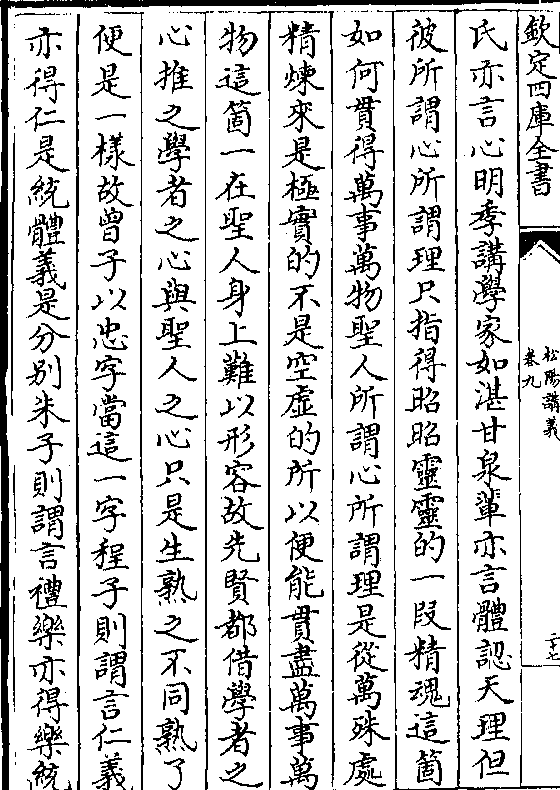 欽定四庫全書
松陽講義
卷九
二十七
氏亦言心明季講學家如湛甘泉輩亦言體認天理但
彼所謂心所謂理只指得昭昭靈靈的一段精魂這箇
如何貫得萬事萬物聖人所謂心所謂理是從萬殊處
精煉來是極實的不是空虛的所以便能貫盡萬事萬
物這箇一在聖人身上難以形容故先賢都借學者之
心推之學者之心與聖人之心只是生熟之不同熟了
便是一樣故曾子以忠字當這一字程子則謂言仁義
亦得仁是統體義是分别朱子則謂言禮樂亦得樂統